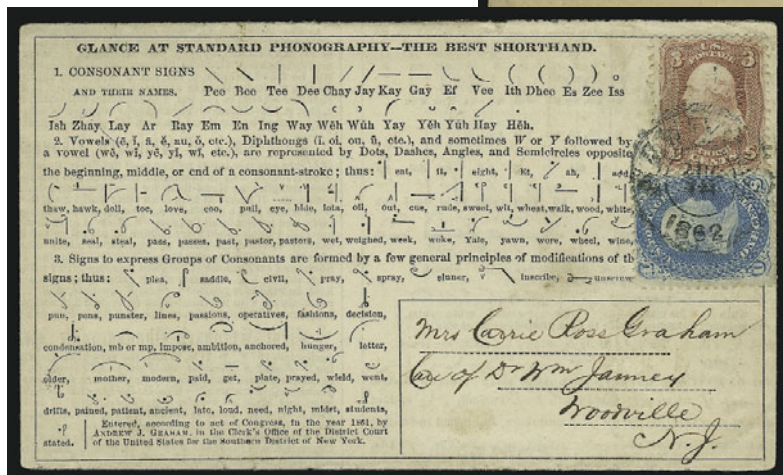 GLANCE AT STANDARD PHONOGRAPHY—THE BEST SHORTHAND.
1. CONSONANT SIGNS
AND THEIR NAMES. Pee Bee Tee Dee Chay Jay Kay Gay Ef Vee Ith Dhee Es Zee Iss
Ish Zhay Lay Ar Ray Em En Ing Way Wĕh Wŭh Yay Yĕh Yŭh Hay Hĕh.
2. Vowels (ĕ, ĭ, ā, ē, au, ŏ, etc.), Diphthongs (ī, oi, ou, ū, etc.), and sometimes W or Y followed by
a vowel (wē, wĭ, yē, yĭ, wī, etc.), are represented by Dots, Dashes, Angles, and Semicircles opposite
the beginning, middle, or end of a consonant-stroke; thus: eat, it, eight, Et, ah, add
thaw, hawk, doll, toe, love, coo, pull, eye, hide, Iota, oil, out, cue, rude, sweet, wit, wheat, walk, wood, white,
unite, seal, steal, pass, passes, past, pastor, pastors, wet, weighed, week, woke, Yale, yawn, wore, wheel, wine,
3. Signs to express Groups of Consonants are formed by a few general principles of modifications of th
signs; thus: plea, saddle, civil, pray, spray, dinner, inscribe, unscrew
pun, pens, punster, lines, passions, operatives, fashions, decision,
condensation, mb or mp, impose, ambition, anchored, hunger, letter,
older, mother, modern, paid, get, plate, prayed, wield, went,
drifts, pained, patient, ancient, late, loud, need, night, midst, students,
stated. Entered, according to act of Congress, in the year 1861, by
ANDREW J. GRAHAM, in the Clerk's Office of the District Court
of the United States for the Southern District of New York.
3 3
CENTS
1862
Mrs Carrie Ross Graham
Care of Dr Wm Janney
Woodville
N. J.